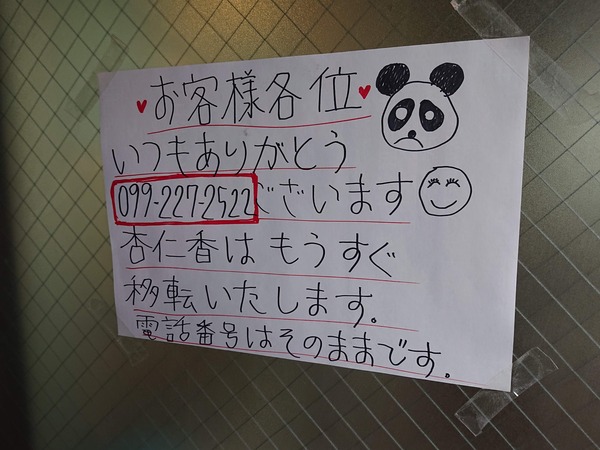 お客様各位
いつもありがとう
099-227-2522 ございます
杏仁香はもうすぐ
移転いたします。
電話番号はそのままです。